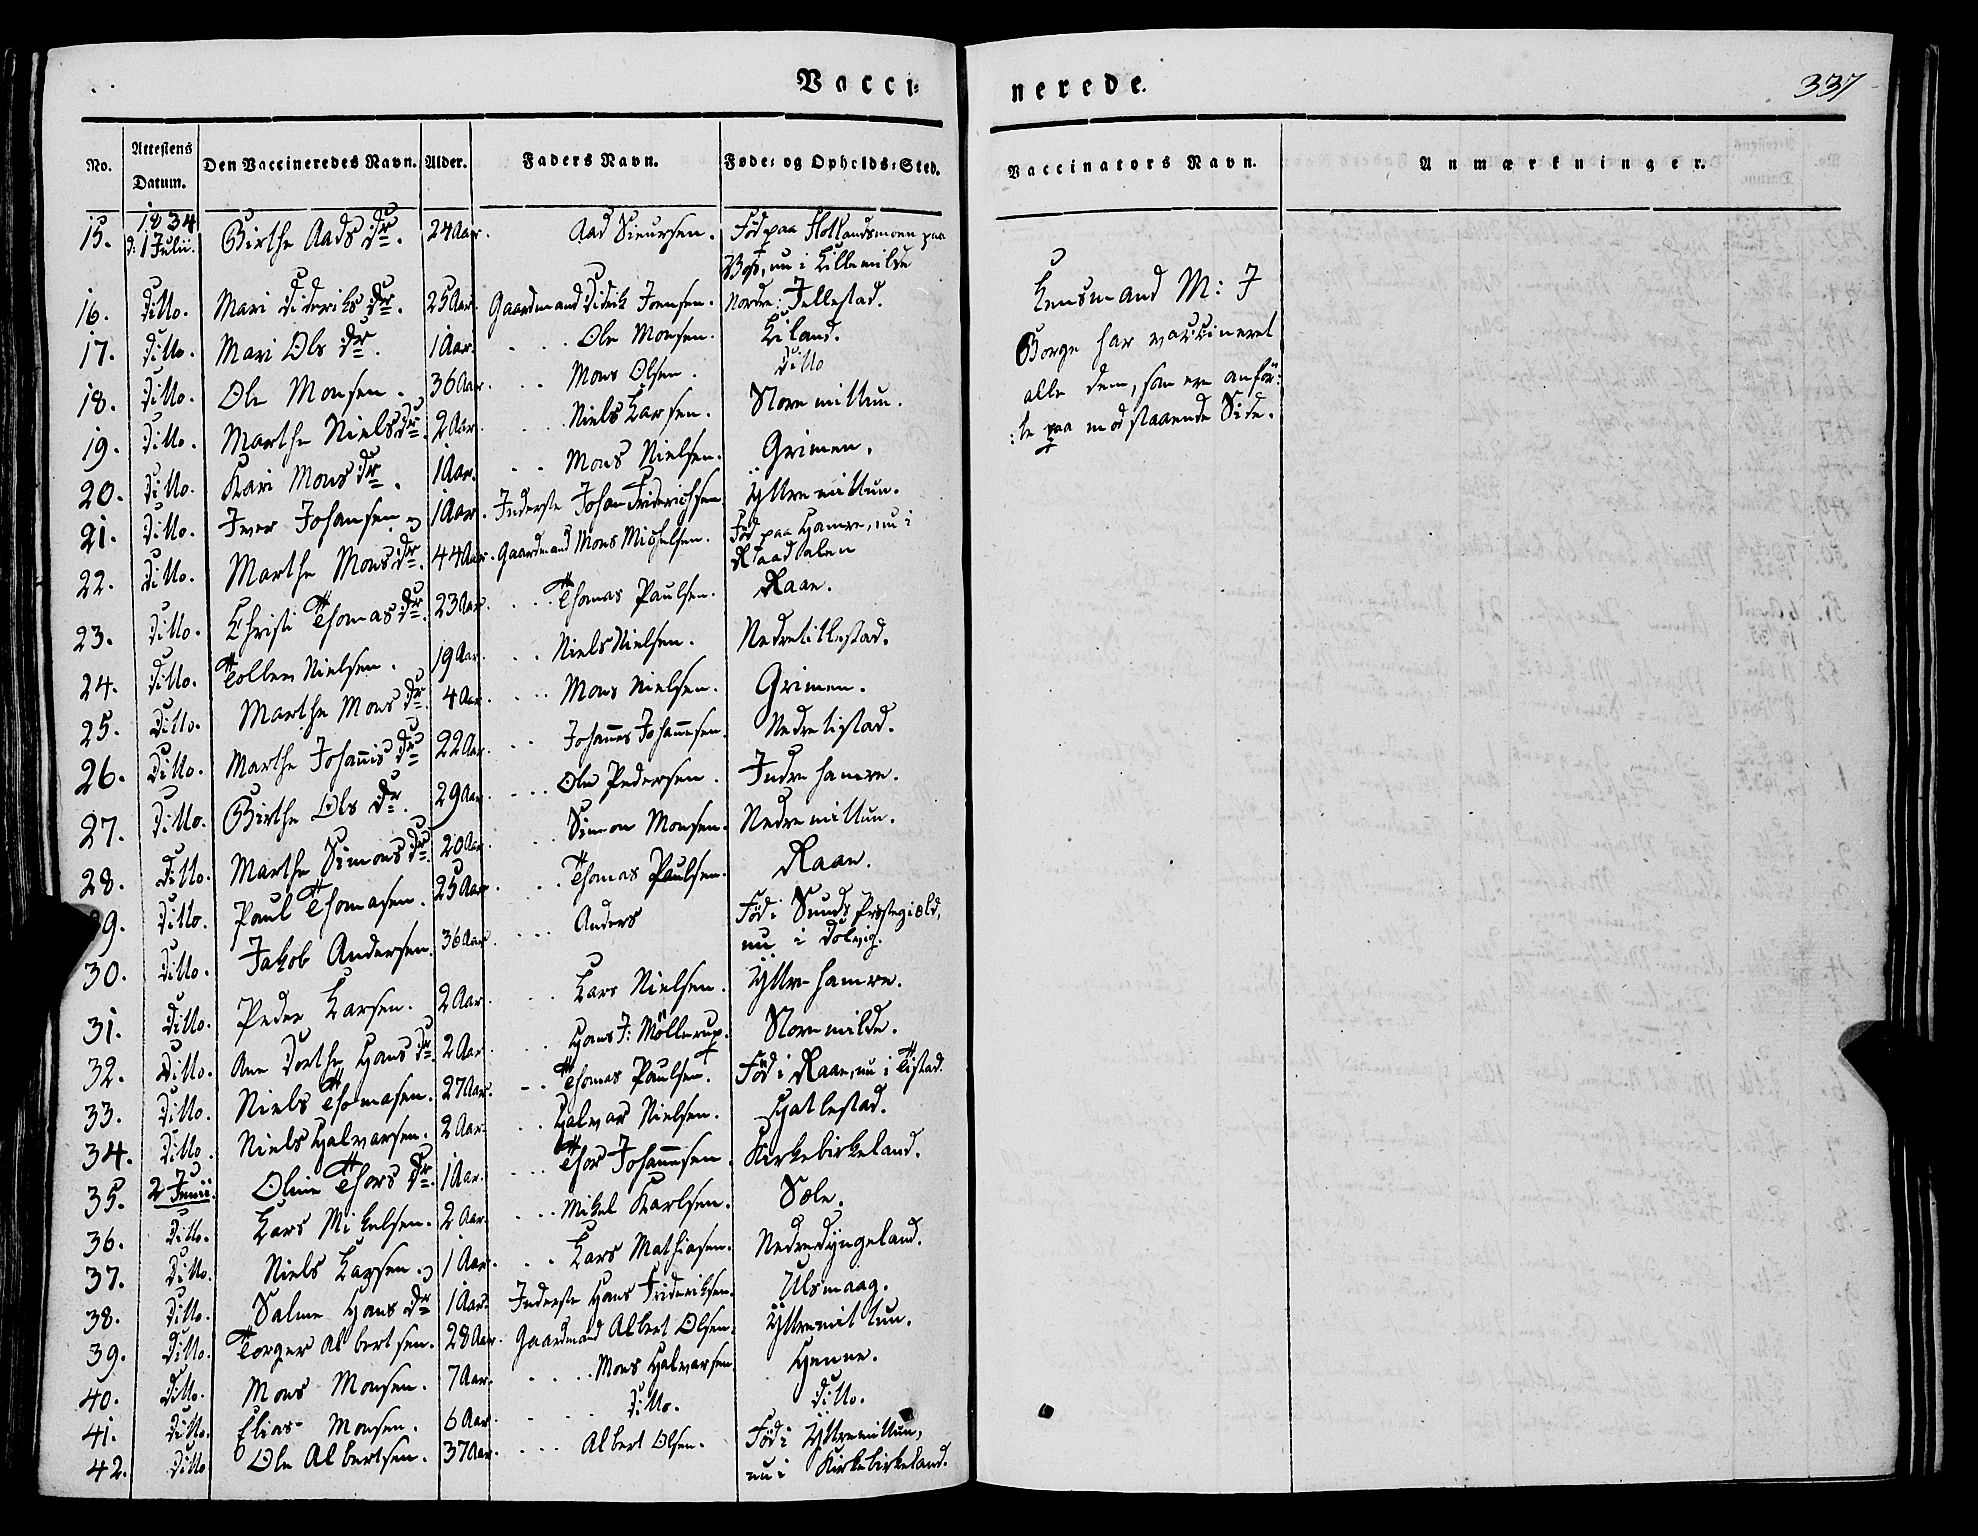 Vacci=
nerede.
337
No. Attestens Datum. Den Vaccineredes Navn. Alder. Faders Navn. Føde= og Opholds=Sted. Vaccinators Navn. Anmærkninger.
15. 1834 d: 1 Julii. Birthe Aads Dr. 24 Aar. Aad Sieursen. Föd paa Hollandsmoen paa
Voss, nu i Lillemilde
16. Ditto. Mari Dideriks Dr. 25 Aar. Gaardmand Didrik Joensen. Nordre: Jellestad.
17. Ditto. Mari Ols Dr. 1 Aar. . . . Ole Monsen. Liland.
18. Ditto. Ole Monsen. 36 Aar. . . Mons Olsen. Ditto
19. Ditto. Marthe Niels Dr. 2 Aar. . . . Niels Larsen. Storemittun.
20. Ditto. Kari Mons Dr. 1 Aar. . . Mons Nielsen. Grimen.
21. Ditto. Iver Johansen 1 Aar. Inderste Johan Friderichsen Yttremittun.
22. Ditto. Marthe Mons Dr. 44 Aar. Gaardmand Mons Michelsen. Föd paa Hamre, nu i
Raadalen
23. Ditto. Christi Thomas Dr. 23 Aar. . . . Thomas Paulsen. Raae.
24. Ditto. Tollev Nielsen. 19 Aar. . . Niels Nielsen. Nedretitlestad.
25. Ditto. Marthe Mons Dr. 4 Aar. . . . Mons Nielsen. Grimen.
26. Ditto. Marthe Johannis Dr 22 Aar. . . Johannes Johannesen. Nedretistad.
27. Ditto. Birthe Ols Dr. 29 Aar. . . . Ole Pedersen. Indrehamre.
28. Ditto. Marthe Simons Dr. 20 Aar. . . Simon Monsen. Nedremittun.
29. Ditto. Paul Thomasen. 25 Aar. . . . Thomas Paulsen. Raae.
30. Ditto. Jakob Andersen. 36 Aar. . . . Anders Föd i Sunds Præstegiæld,
nu i Dolvig.
31. Ditto. Peder Larsen. 2 Aar. . . . Lars Nielsen. Yttrehamre.
32. Ditto. Ane Dorthe Hans Dr. 2 Aar. . . . Hans J: Möllerup. Storemilde.
33. Ditto. Niels Thomasen. 27 Aar. . . Thomas Paulsen. Föd i Raae, nu i Tistad.
34. Ditto. Niels Halvarsen. 2 Aar. . . Halvar Nielsen. Hatlestad.
35. 2 Junii. Oline Thors Dr. 1 Aar. . . . Thor Johannesen. Kirkebirkeland.
36. Ditto. Lars Mikelsen. 2 Aar. . . . Mikel Karlsen. Sæle.
37. Ditto. Niels Larsen. 1 Aar. . . Lars Mathiasen. Nedredyngeland.
38. Ditto. Salme Hans Dr 1 Aar. Inderste Hans Frideriksen. Ulsmaag.
39. Ditto. Torger Albertsen. 28 Aar. Gaardmand Albert Olsen. Yttremittun.
40. Ditto. Mons Monsen. 7 Aar. . . . . Mons Halvarsen Henne.
41. Ditto. Elias Monsen. 6 Aar. . . . Ditto. Ditto.
42. Ditto Ole Albertsen. 37 Aar. . . . Albert Olsen. Föd i Yttremittun,
nu i Kirkebirkeland.
Lensmand M: J
Borge har vaccineret
alle dem, som ere anför:
:te paa modstaaende Side.